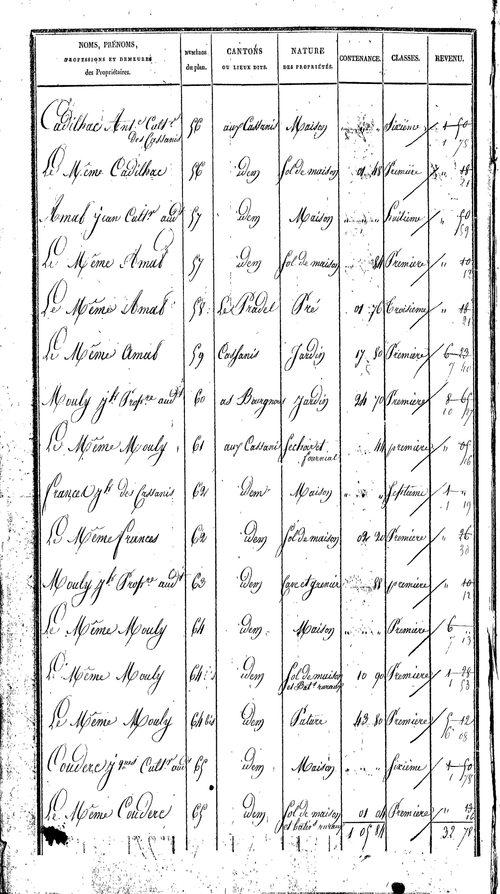 NOMS, PRÉNOMS, PROFESSIONS ET DEMEURES des Propriétaires. NUMÉROS du plan. CANTONS OU LIEUX DITS. NATURE DES PROPRIÉTÉS. CONTENANCE. CLASSES. REVENU.
Cadilhac Ant.e Cult.r des Cassanis 56 aux Cassanis Maison " " Sixième 1 50 1 75
Le Même Cadilhac 56 idem Sol de maison 01 48 Première " 18 21
Amal jean Cult.r aud.t 57 idem Maison " " huitième " 50 59
Le Même Amal 57 idem Sol de maison 84 Première " 10 12
Le Même Amal 58 Le Pradel Pré 01 76 Troisième " 18 21
Le Même Amal 59 Cassanis Jardin 17 80 Première 6 29 7 40
Mouly j.h Prop.re aud.t 60 as Bourgnou Jardin 24 70 Première 8 65 10 17
Le Même Mouly 61 aux Cassani Sechoir et fournial 44 première " 05 06
frances j.h des Cassanis 62 idem Maison " " Septième 1 " 1 19
Le Même frances 62 idem Sol de maison 02 20 Première " 26 30
Mouly j.h Prop.re aud.t 63 idem Cave et Grenier 88 première " 10 12
Le Même Mouly 64 idem Maison " " Première 6 " 7 13
Le Même Mouly 64 idem Sol de maison et Bat.t ruraux 10 90 Première 1 29 1 53
Le Même Mouly 64 bis idem Pature 43 80 Première 5 12 6 08
Couderc j.ques Cult.r aud.t 65 idem Maison " " Sixième 1 50 1 78
Le Même Couderc 65 idem Sol de maison et batim.t ruraux 01 04 Première "
1 05 84 32 78